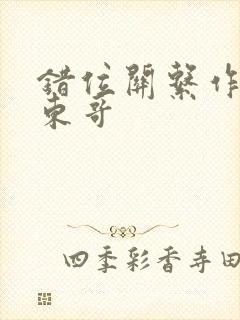 錯位關繫作
東哥
四季彩香寺田